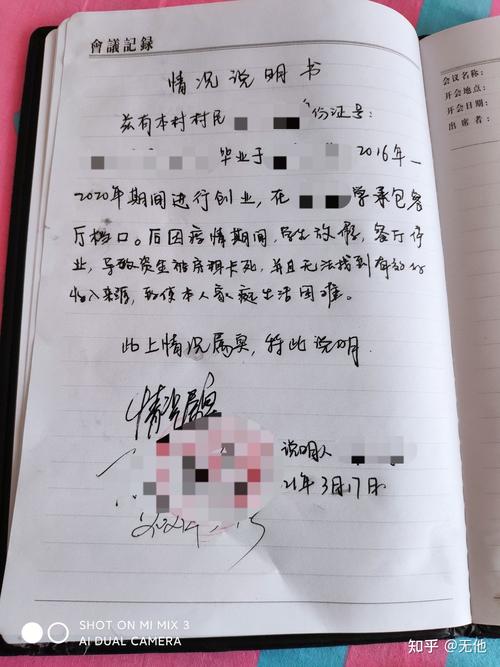 會議記録
情况说明书
兹有本村村民 份证号：
毕业于 2016年—
2020年期间进行创业，在 学承包餐
厅档口。后因疫情期间，学生放假，餐厅停
业，导致资金被房租卡死，并且无法找到有效的
收入来源，致使本人家庭生活困难。
此上情况属实，特此说明.
情况属实
说明人
21年3月17日
会议名称：
开会地点：
开会日期：
出席者：
SHOT ON MI MIX 3
AI DUAL CAMERA
知乎 @无他